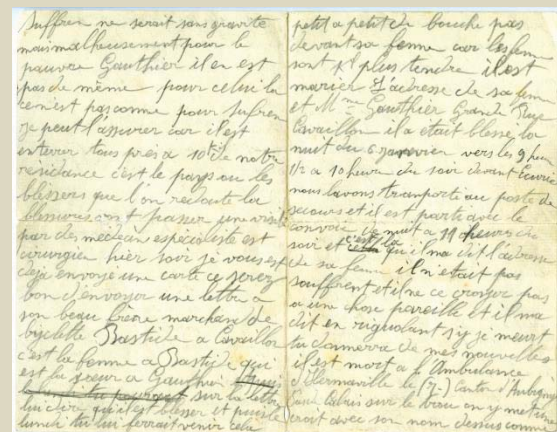 Suffren ne serait sans gravité
mais malheusement pour le
pauvre Gauthier il en est
pas de même pour celui la
ce n'est pas comme pour Sufren
je peut l'assurer car il est
enterrer tous près a 10 k de notre
résidance c'est le pays ou les
blessers que l'on redoute la
blessures ont passer une visite
par des médecin espécialiste est
cirurgien hier soir je vous est
deja envoyé une carte ce serez
bon d'envoyer une lettre a
son beau frere marchand de
bycilette Bastide a Cavaillon
c'est la femme a Bastide qui
est la sœur a Gauthier
sur la lettre
lui dire qu'il est blesser et puis le
lundi tu lui ferrait venir cela
petit a petit de bouche pas
devant sa femme car les femme
sont plus tendre il est
marier L'adresse de sa femme
et Mme Gauthier Grande Rue
Cavaillon il a était blesser la
nuit du 6 janvier vers les 9 heure
1/2 a 10 heure du soir devant
nous lavons transporté au poste de
secours et il est partit avec le
convoie de nuit a 11 heures du
soir et c'est la qu'il ma dit l'adresse
de sa femme il n'etait pas
souffrent et il ne croyer pas
a une chose pareille et il ma
dit en rigoulant si je meurt
tu donnerra de mes nouvelles
il est mort a l'Ambulance
d'Hermaville le (7-) Canton d'Aubigny
sur le on y mettra
croit avec son nom dessus comme